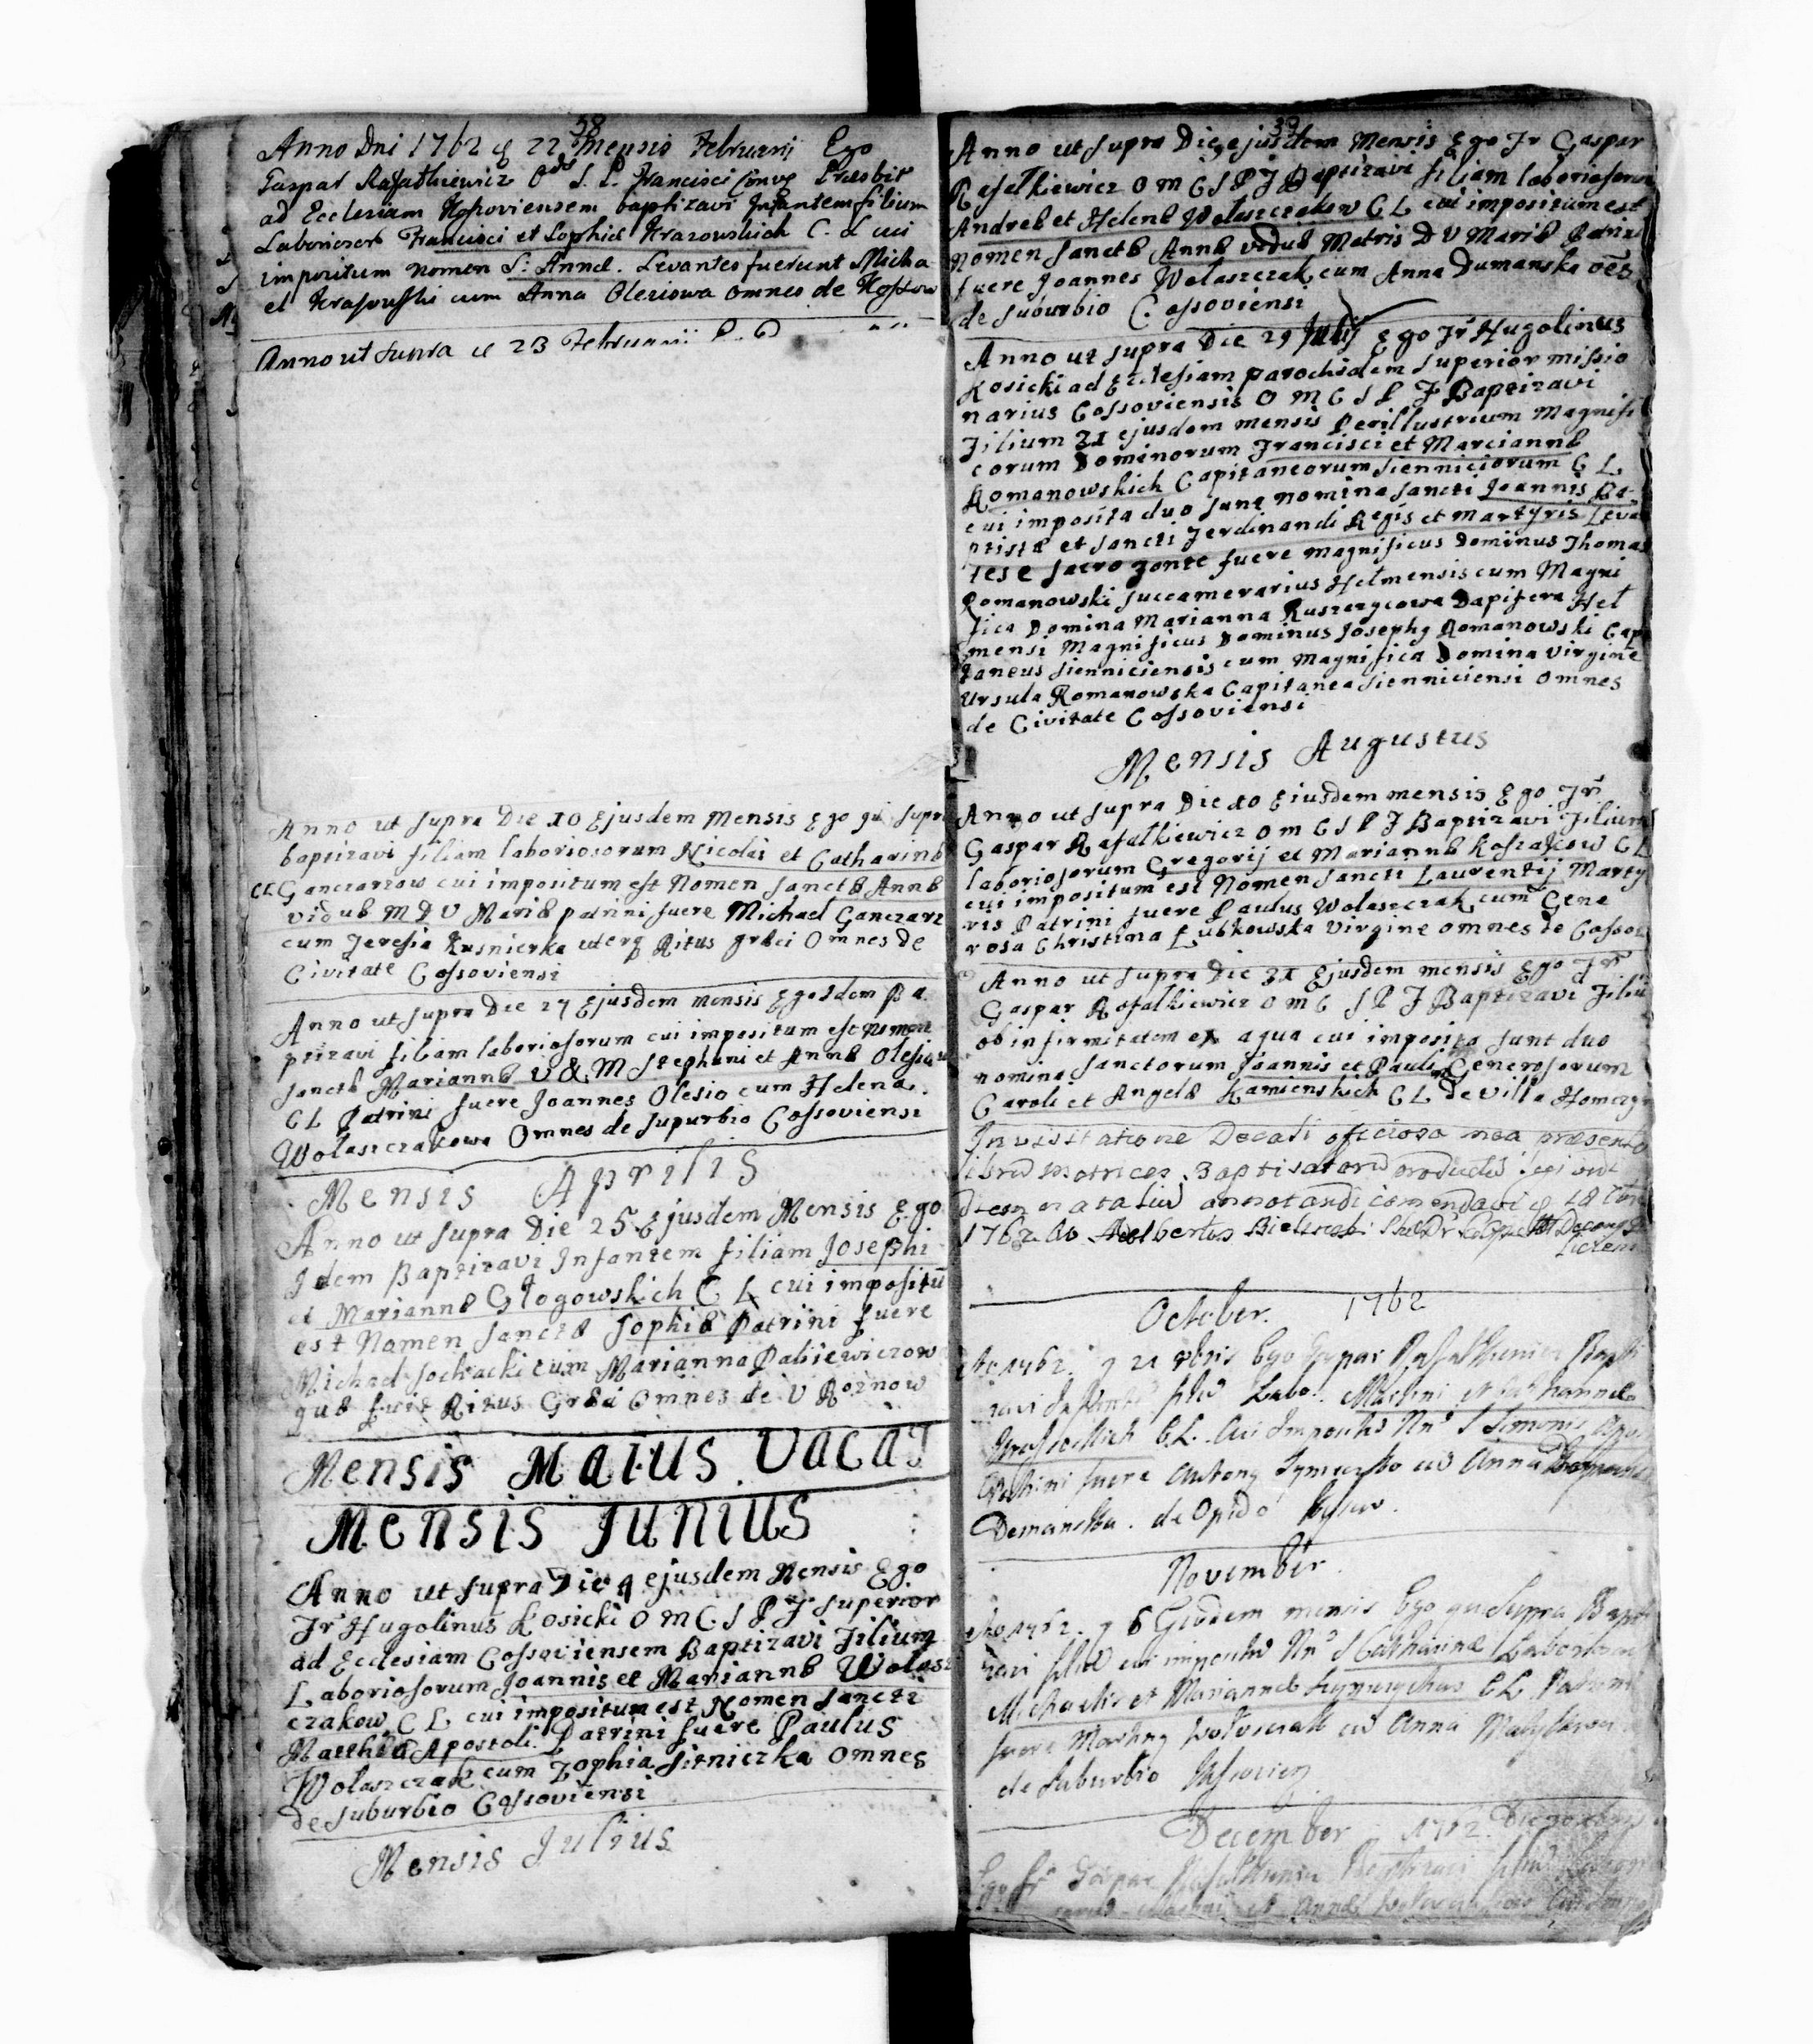 58
Anno Dni 1762 d 22 Mensis Februarii Ego
Gaspar Rafałkiewicz Ords S. P. Francisci Conve Presbit
ad Ecclesiam Kossoviensem baptizavi Infantem filium
Laboriosor Francisci et Zophiæ Krasowskich C. L cui
impositum nomen S: Annæ. Levantes fuerunt Micha
et Krasowski cum Anna Olesiowa omnes de Kossow
Anno ut supra d 23 Februarii
Anno ut supra Die 10 Ejusdem Mensis Ego qui supra
baptizavi filiam laboriosorum Nicolai et Catharinæ
CL Ganczarzow cui impositum est Nomen Sanctæ Annæ
viduæ M D V Mariæ patrini fuere Michael Ganczarz
cum Teresia Kusnierka uterq Ritus græci Omnes de
Civitate Cossoviensi
Anno ut supra Die 27 Ejusdem mensis Ego Idem Ba
ptizavi filiam laboriosorum cui impositum est Nomen
Sanctæ Mariannæ V & M Stephani et Annæ Olesiow
CL Patrini fuere Joannes Olesio cum Helena
Wolaszczakowa Omnes de Supurbio Cossoviensi
Mensis Aprilis
Anno ut supra Die 25 Ejusdem Mensis Ego
Idem Baptizavi Infantem filiam Josephi
et Mariannæ Głogowskich C L cui impositū
est Nomen Sanctæ Sophiæ Patrini fuere
Michael Sochacki cum Marianna Paliiewiczow
quæ fuit Ritus Græci Omnes de V Roznow
Mensis Maius Vacat
Mensis Junius
Anno ut supra Die 9 ejusdem Mensis Ego
Fr Hugolinus Kosicki O M C S P F Superior
ad Ecclesiam Cossoviensem Baptizavi Filium
Laboriosorum Joannis et Mariannæ Wolasz
czakow C L cui impositum est Nomen Sancti
Matthæi Apostoli. Patrini fuere Paulus
Wolaszczak cum Zophia Sitniczka Omnes
de Suburbio Cossoviensi
Mensis Julius
39
Anno ut supra Die ejusdem Mensis Ego Fr Gaspar
Rafałkiewicz O M C S P F Baptizavi filiam laboriosorum
Andreæ et Helenæ Wolaszczakow C L cui impositum est
Nomen Sanctæ Annæ viduæ Matris D V Mariæ Patri
fuere Joannes Wolaszczak cum Anna Dumanska oēs
de suburbio Cossoviensi
Anno ut supra Die 29 Julij Ego Fr Hugolinus
Kosicki ad Ecclesiam parochialem Superior missio
narius Cossoviensis O M C S P F Baptizavi
Filium 21 ejusdem mensis Perillustrium Magnifi
corum Dominorum Francisci et Mariannæ
Romanowskich Capitaneorum Sienniciorum C L
cui imposita duo sunt nomina Sancti Joannis Ba-
ptistæ et Sancti Ferdinandi Regis et Martyris Leva
tes e Sacro Fonte fuere magnificus Dominus Thomas
Romanowski Succamerarius Hełmensis cum Magni
fica Domina Marianna Ruszczycowa Dapifera Heł
mensi Magnificus Dominus Josephq Romanowski Cap
taneus Sienniciensis cum Magnifica Domina Virgine
Ursula Romanowska Capitanea Sienniciensi Omnes
de Civitate Cossoviensi
Mensis Augustus
Anno ut supra Die 10 Ejusdem mensis Ego Fr
Gaspar Rafałkiewicz O M C S P F Baptizavi Filium
laboriosorum Gregorij et Mariannæ Koszakow CL
cui impositum est Nomen Sancti Laurentij Marty
ris Patrini fuere Paulus Wolaszczak cum Gene
rosa Christina Łubkowska Virgine omnes de Cassov
Anno ut supra Die 31 Ejusdem mensis Ego Fr
Gaspar Rafałkiewicz O M C S P F Baptizavi Filiū
ob infirmitatem ex aqua cui imposita sunt duo
nomina Sanctorum Joannis et Pauli Generosorum
Caroli et Angelæ Kamienskich C L de villa Homczy
In visitatione Decali officiosa mea præsente
librū Matricen Baptisatorū
Diem natalium annotandi comendavi d 18
1762 Ao Adelbertus
October. 1762
Ao 1762. d 21 8bris Ego Gaspar Rafałkiewicz Bapti
zavi Infantē filiū Labo. Martini et Cathannæ
Krasowskich C L. Cui Impositū Nn S Simonis Apo
Patrini fuere Antony Szymuszko cū Anna
Demanska. de Opido Kossow.
November.
Ao 1762. d 6 Ejusdem mensis Ego qui Supra Bapti
zavi filiā cui impositū Nn S Catharinæ Laborioso
Michaelis et Mariannæ CL Patrini
fuere Marting Woloszczak cū Anna
de Suburbio Kossovien
December 1762.
Ego Fr Gaspar Rafałkiewicz Baptizavi filiū
et Annæ